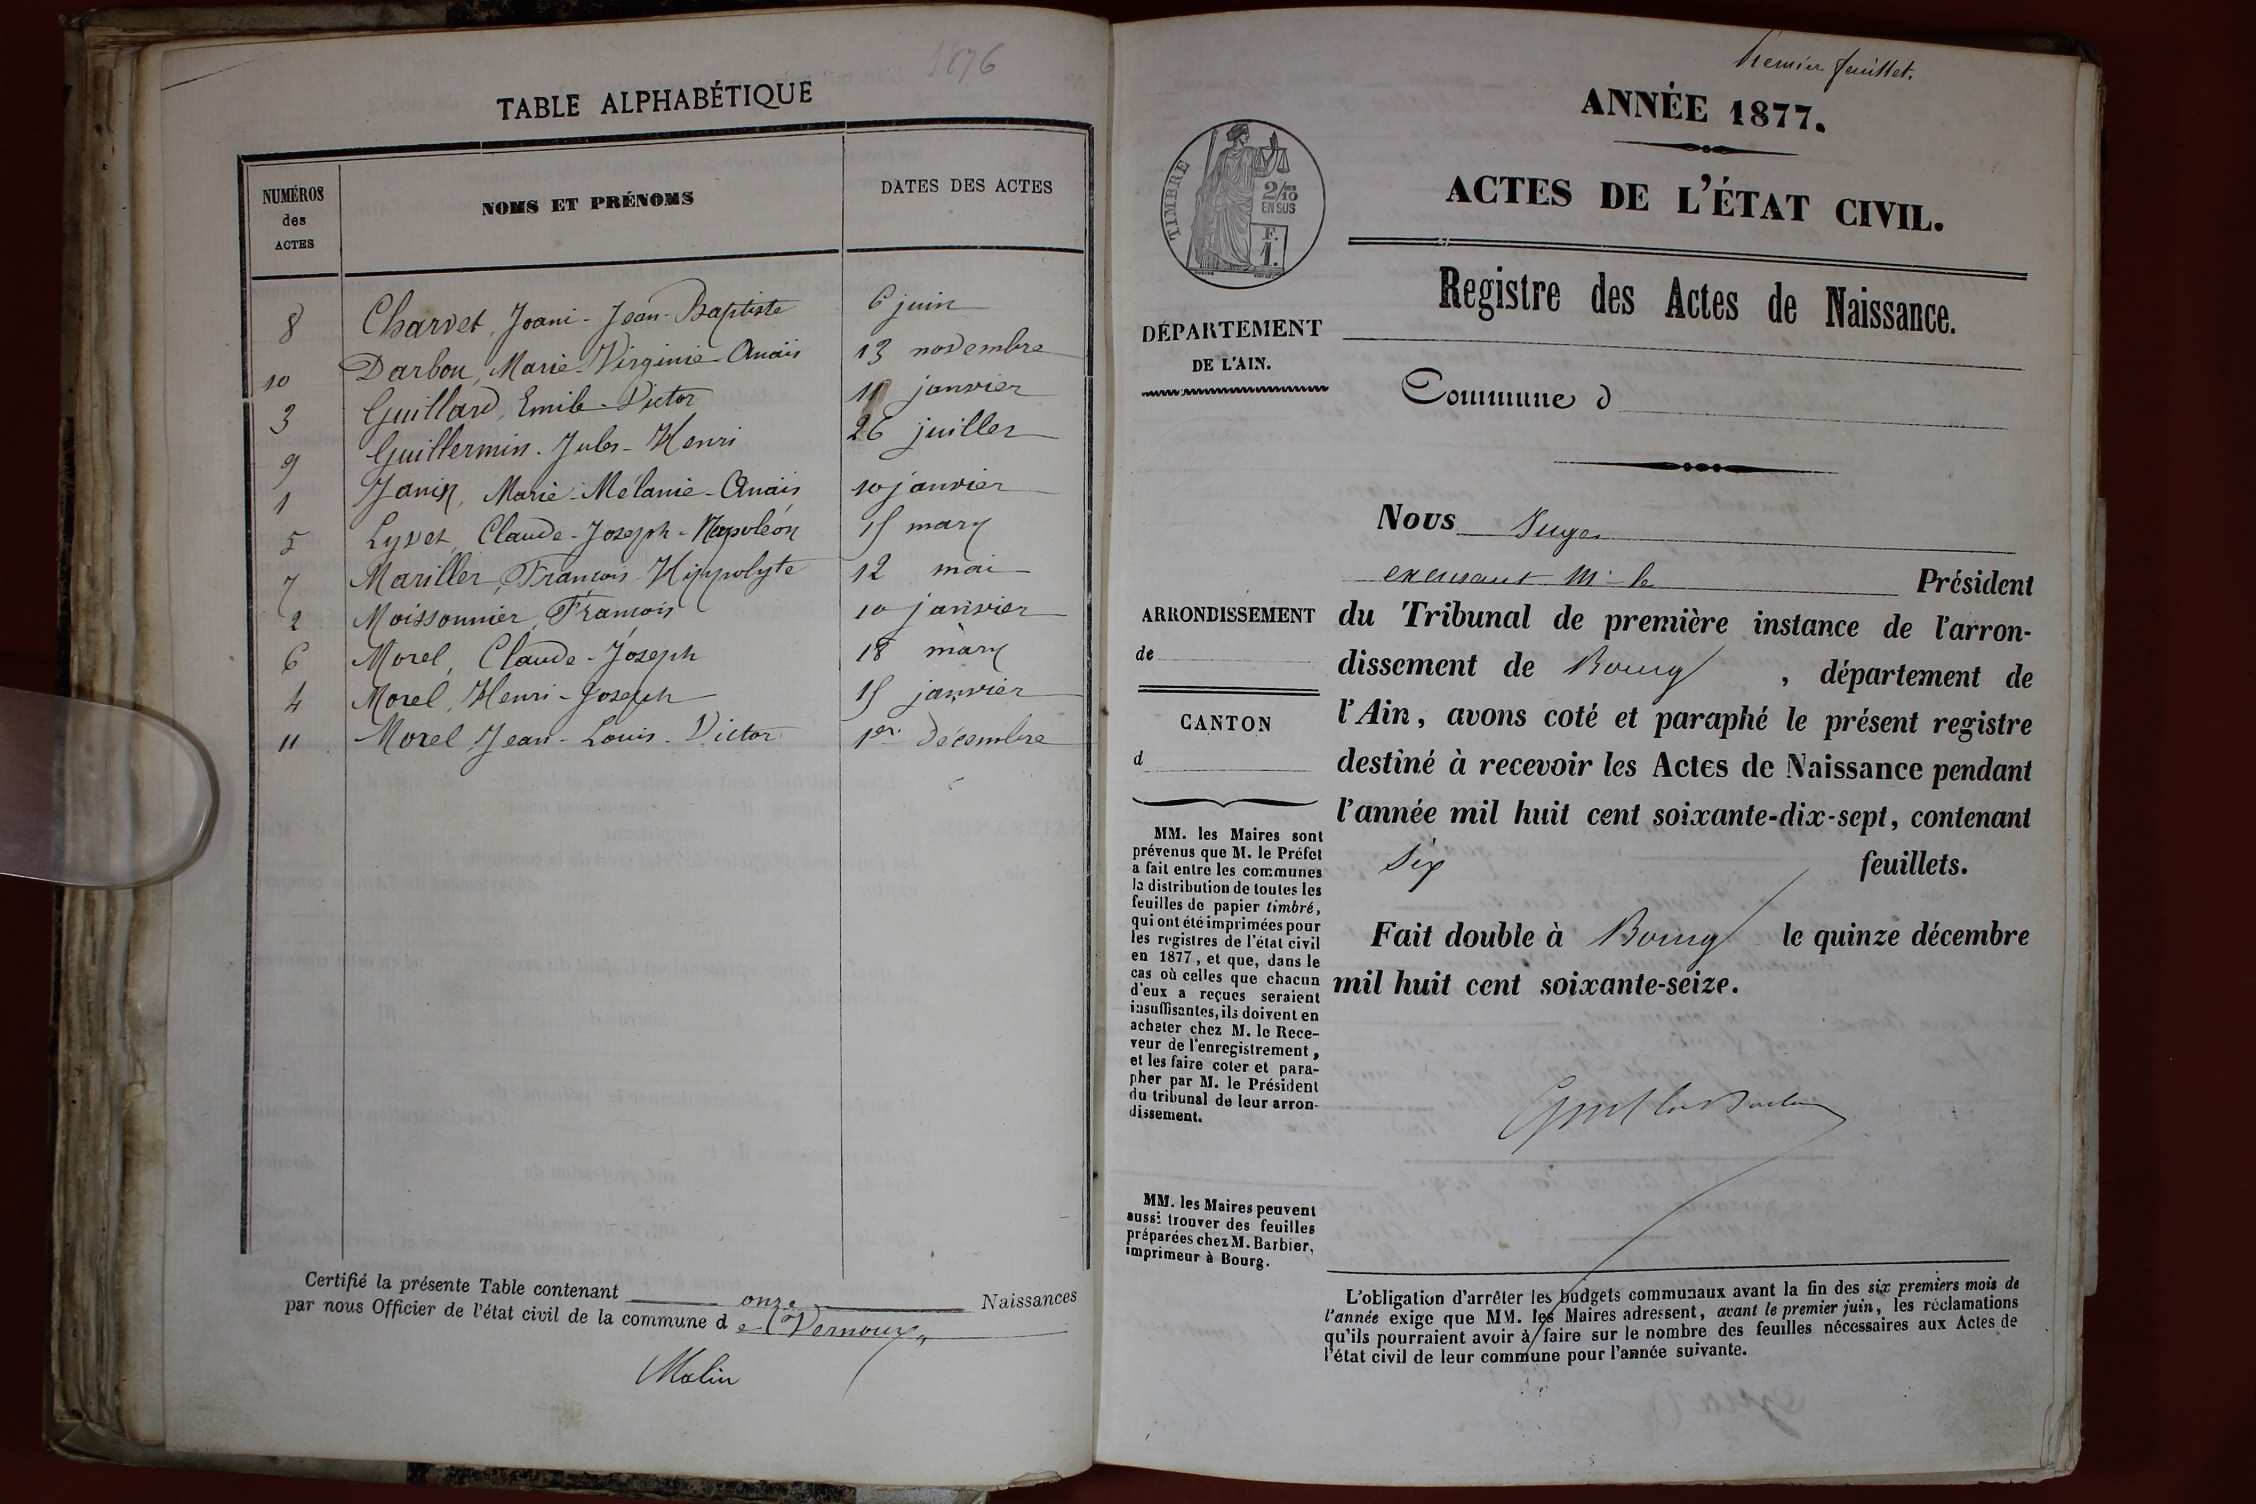 1876
TABLE ALPHABÉTIQUE
NUMÉROS
des
ACTES
NOMS ET PRÉNOMS
DATES DES ACTES
8 Charvet, Joani - Jean-Baptiste 6 juin
10 Darbon, Marie-Virginie-Anaïs 13 novembre
3 Guillard, Emile-Victor 11 janvier
9 Guillermin. Jules-Henri 26 juillet
1 Janin, Marie-Mélanie-Anaïs 10 janvier
5 Lyvet, Claude-Joseph-Napoléon 15 mars
7 Mariller, François-Hippolyte 12 mai
2 Moissonnier, François 10 janvier
6 Morel, Claude-Joseph 18 mars
4 Morel, Henri-Joseph 15 janvier
11 Morel, Jean-Louis-Victor 1er décembre
Certifié la présente Table contenant onze Naissances
par nous Officier de l'état civil de la commune de Vernoux
Premier feuillet.
ANNÉE 1877.
TIMBRE
2/10
EN SUS
F.
1.
ACTES DE L'ÉTAT CIVIL.
Registre des Actes de Naissance.
DÉPARTEMENT
DE L'AIN.
Commune d
ARRONDISSEMENT
de
CANTON
d
MM. les Maires sont
prévenus que M. le Préfet
a fait entre les communes
la distribution de toutes les
feuilles de papier timbré,
qui ont été imprimées pour
les registres de l'état civil
en 1877, et que, dans le
cas où celles que chacun
d'eux a reçues seraient
insuffisantes, ils doivent en
acheter chez M. le Rece-
veur de l'enregistrement,
et les faire coter et para-
pher par M. le Président
du tribunal de leur arron-
dissement.
MM. les Maires peuvent
aussi trouver des feuilles
préparées chez M. Barbier,
imprimeur à Bourg.
Nous Juge
excusant M. le Président
du Tribunal de première instance de l'arron-
dissement de Bourg, département de
l'Ain, avons coté et paraphé le présent registre
destiné à recevoir les Actes de Naissance pendant
l'année mil huit cent soixante-dix-sept, contenant
six feuillets.
Fait double à Bourg le quinze décembre
mil huit cent soixante-seize.
L'obligation d'arrêter les budgets communaux avant la fin des six premiers mois de
l'année exige que MM. les Maires adressent, avant le premier juin, les réclamations
qu'ils pourraient avoir à faire sur le nombre des feuilles nécessaires aux Actes de
l'état civil de leur commune pour l'année suivante.